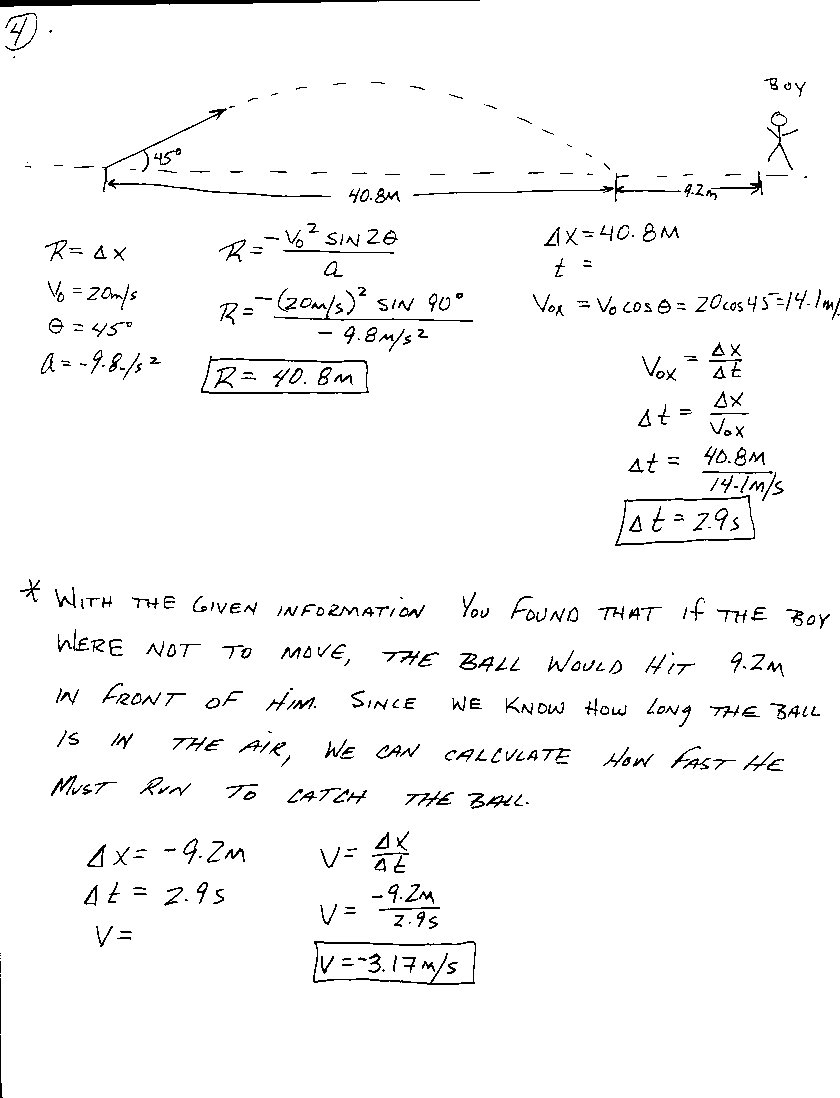 4.
BOY
45°
40.8M
9.2m
R = Δx
V₀ = 20m/s
θ = 45°
a = -9.8m/s²
R = -V₀² SIN 2θ / a
R = -(20m/s)² SIN 90° / -9.8m/s²
R = 40.8M
Δx = 40.8M
t =
V₀x = V₀ cos θ = 20cos45=14.1m/
V₀x = Δx / Δt
Δt = Δx / V₀x
Δt = 40.8M / 14.1m/s
Δt = 2.9s
* WITH THE GIVEN INFORMATION YOU FOUND THAT if THE BOY
WERE NOT TO MOVE, THE BALL WOULD HIT 9.2M
IN FRONT OF HIM. SINCE WE KNOW HOW LONG THE BALL
IS IN THE AIR, WE CAN CALCULATE HOW FAST HE
MUST RUN TO CATCH THE BALL.
Δx = -9.2M
Δt = 2.9s
V =
V = Δx / Δt
V = -9.2M / 2.9s
V = -3.17m/s